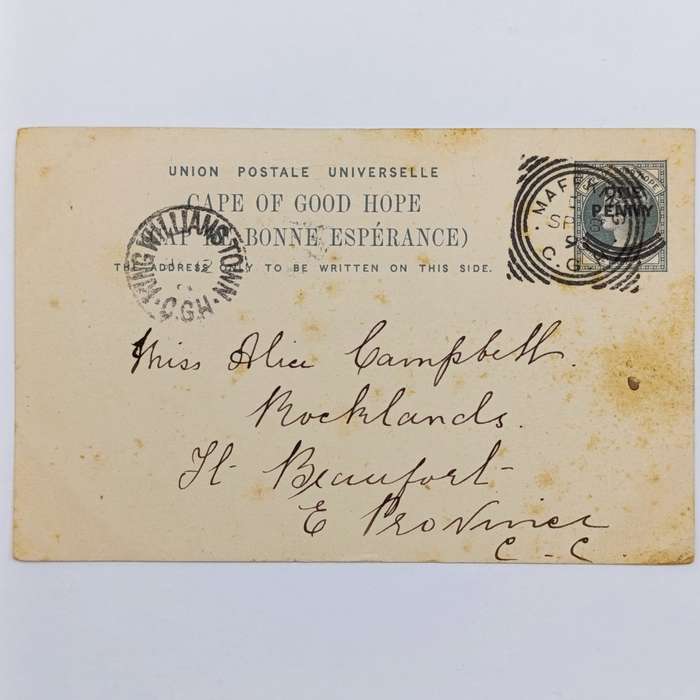 UNION POSTALE UNIVERSELLE
CAPE OF GOOD HOPE
BONNE ESPÉRANCE)
THE ADDRESS ONLY TO BE WRITTEN ON THIS SIDE.
KING WILLIAMS TOWN
C.G.H.
HOPE
ONE
PENNY
SP
C. G
Miss Alice Campbell.
Rocklands.
Ft. Beaufort
E Province
C - C.